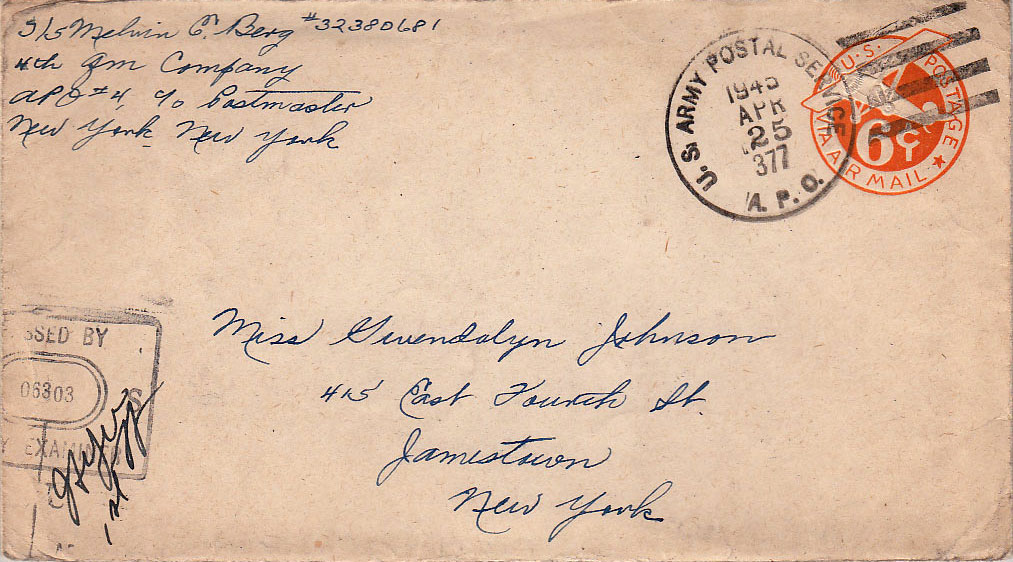 S/S Melvin E. Berg #32380681
4th Qm Company
APO #4, c/o Postmaster
New York, New York
U.S. ARMY POSTAL SERVICE
1945
APR
25
377
A.P.O.
U.S. POSTAGE
6¢
VIA AIR MAIL
SSED BY
06303
S
Y EXAMINER
1st
Miss Gwendolyn Johnson
415 East Fourth St.
Jamestown
New York